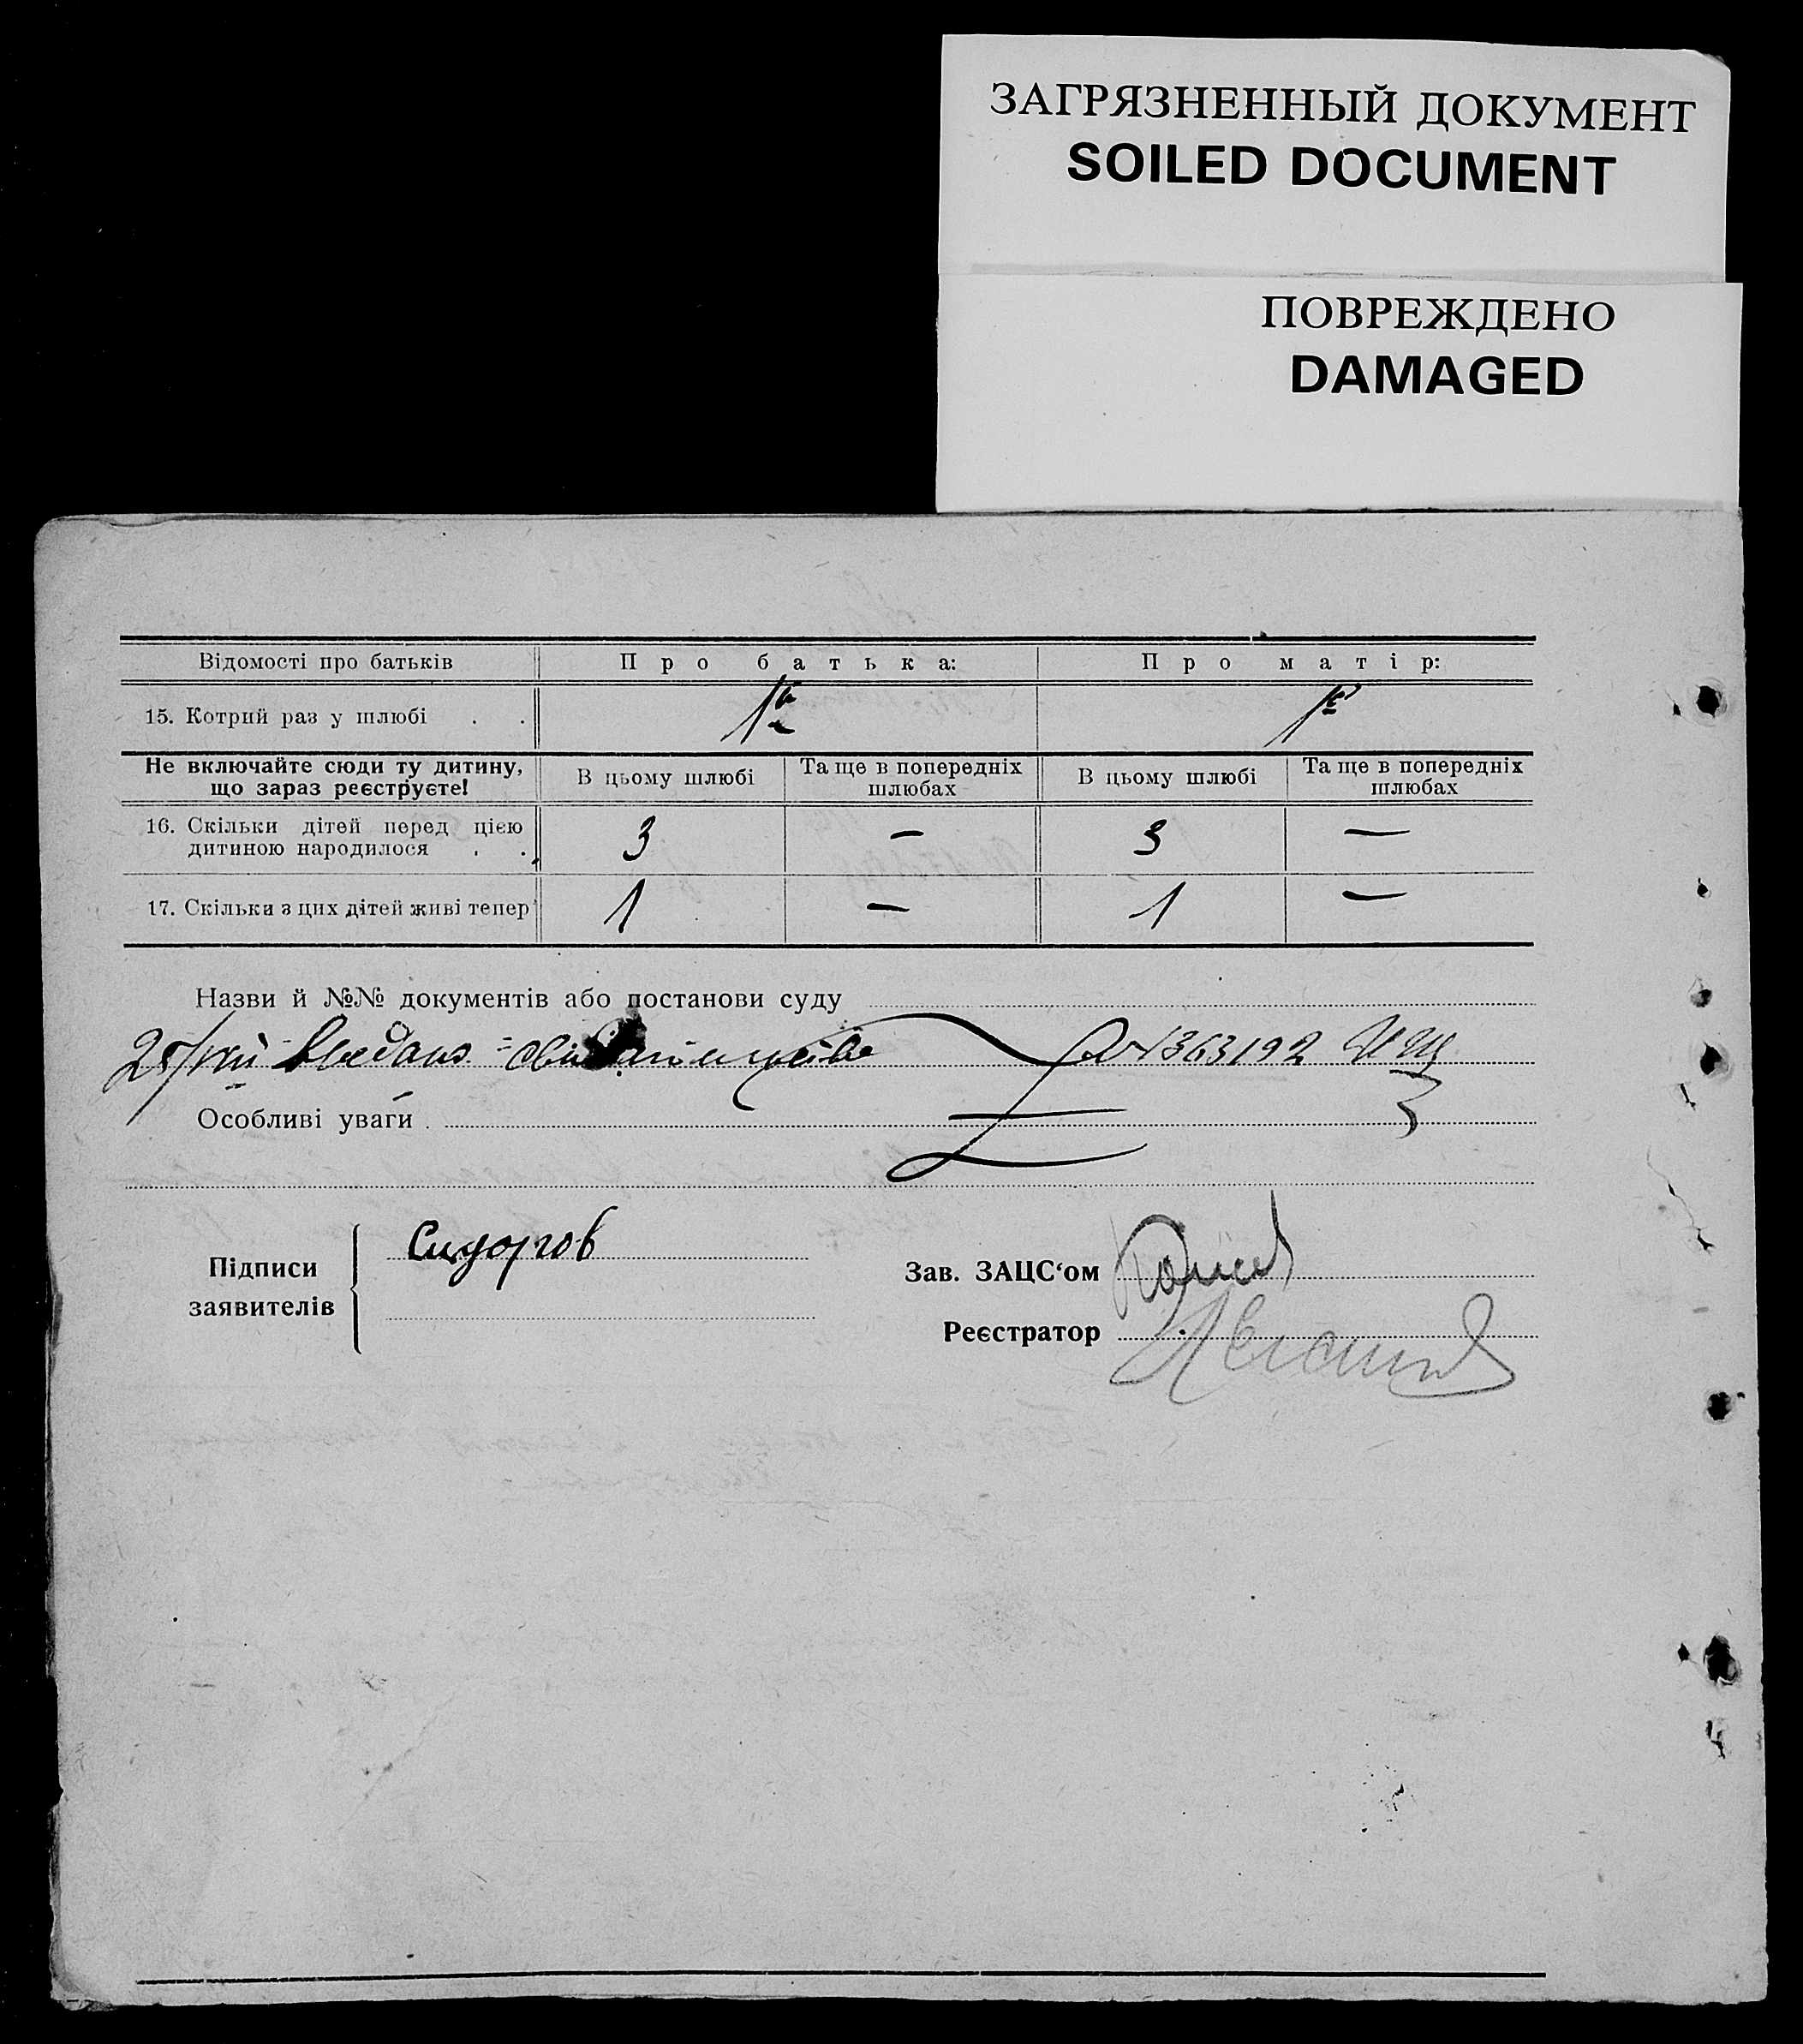 ЗАГРЯЗНЕННЫЙ ДОКУМЕНТ
SOILED DOCUMENT
ПОВРЕЖДЕНО
DAMAGED
Відомості про батьків Про батька: Про матір:
15. Котрий раз у шлюбі . . 1й 1й
Не включайте сюди ту дитину, що зараз реєструєте! В цьому шлюбі Та ще в попередніх шлюбах В цьому шлюбі Та ще в попередніх шлюбах
16. Скільки дітей перед цією
дитиною народилося . . 3 — 3 —
17. Скільки з цих дітей живі тепер 1 — 1 —
Назви й №№ документів або постанови суду
№ 1363192
Особливі уваги .
Підписи заявителів Сидоров
Зав. ЗАЦС‘ом
Реєстратор